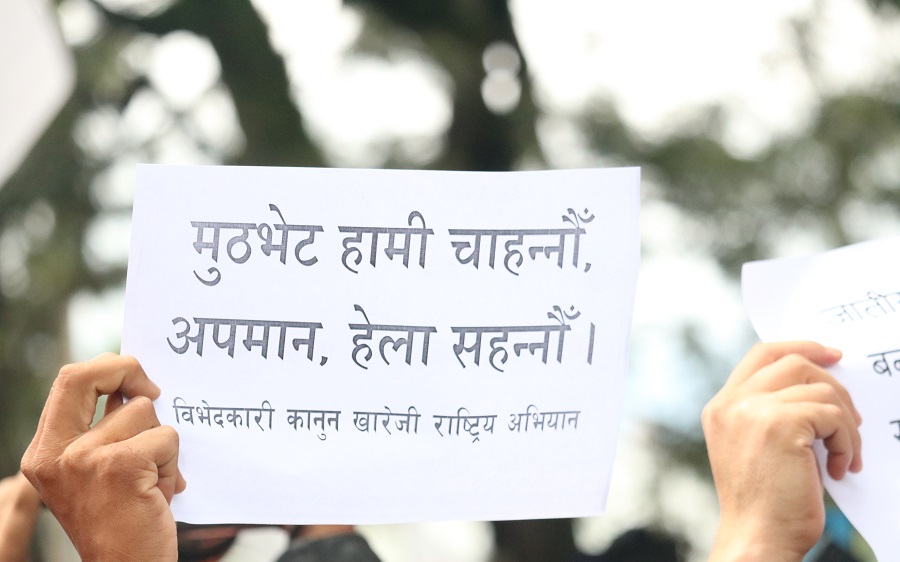 मुठभेट हामी चाहन्नौँ,
अपमान, हेला सहन्नौँ ।
विभेदकारी कानुन खारेजी राष्ट्रिय अभियान